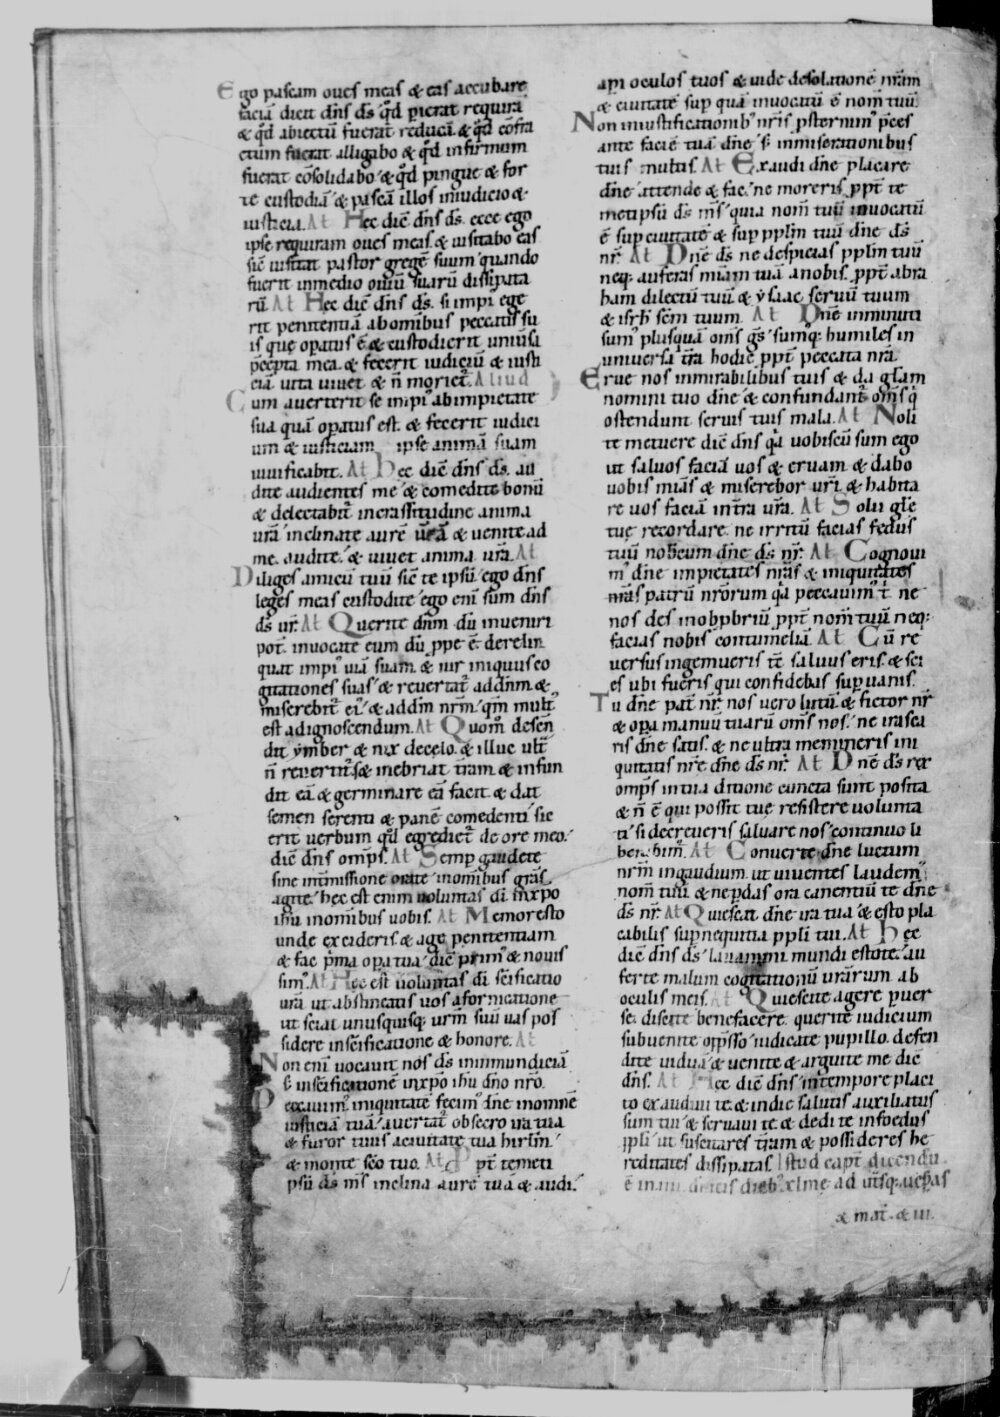 Ego pascam oues meas & eas accubare
faciā dicit dn̄s ds̄ qd̄ perierat requirā
& qd̄ abiectū fuerat reducā & qd̄ cōfra
ctum fuerat alligabo & qd̄ infirmum
fuerat cōsolidabo & qd̄ pingue & for
te custodiā & pascā illos iniudicio &
iusticia. At Hec dic̄ dn̄s ds̄. ecce ego
ipse requiram oues meas & uisitabo eas
sic̄ uisitat pastor gregē suum quando
fuerit inmedio ouiū suarū dissipata
rū. At Hec dic̄ dn̄s ds̄. si impi ege
rit penitentiā abomībus peccatis su
is que opatus ē & custodierit uniūsa
p̄cepta mea. & fecerit iudiciū & iusti
ciā uita uiuet & n̄ moriet̄. Aliud
Cum auerterit se impi' abimpietate
sua quā opatus est. & fecerit iudici
um & iusticiam ipse animā suam
uiuificabit. At Hec dic̄ dn̄s ds̄. au
dite audientes me & comedite bonū
& delectabit̄ incrassitudine anima
urā inclinate aurē urā & uenite ad
me. audite. & uiuet anima ura. At
Diliges amicū tuū sic̄ te ipsū ego dn̄s
leges meas custodite ego eni sum dn̄s
ds̄ ur̄. At Querite dnm̄ dū inueniri
pot̄. inuocate eum dū ppe ē. derelin
quat impi' uiā suam. & uir iniquus co
gitationes suas & reuertat̄ addnm̄ &
miserebit̄ ei' & addm̄ nrm̄ qm̄ mult'
est adignoscendum. At Quom̄ descen
dit ymber & nix decelo. & illuc ult̄
n̄ reuertit̄. s& inebriat t̄ram & infun
dit eā & germinare eā facit & dat
semen serenti & panē comedenti sic
erit uerbum qd̄ egrediet̄ de ore meo.
dic̄ dn̄s omps̄. At Semp gaudete
sine int̄missione orate inomībus gr̄as
agite. hec est enim uoluntas di inxpo
ihu inomnibus uobis. At Memoresto
unde excideris & age penitentiam
& fac p̄ma opa tua dic̄ prim' & nouis
sim'. At Hec est uoluntas di sc̄ificatio
urā ut abstineatis uos afornicatione
ut sciat unusquisq: urm̄ suū uas pos
sidere insc̄ificatione & honore. At
Non eni uocauit nos ds̄ inimmundiciā
s; insc̄ificationē inxpo ihu dno nro.
Peccauim' iniquitatē fecim' dn̄e inomnē
iusticiā tuā auertat̄ obsecro ira tua
& furor tuus aciuitate tua hirlm̄
& monte sc̄o tuo. At Ppt̄ temeti
psū ds̄ ms̄ inclina aurē tuā & audi.
api oculos tuos & uide desolationē nrām
& ciuitatē sup quā inuocatū ē nom̄ tuū.
Non iniustificationib' nr̄is psternim' pces
ante faciē tuā dn̄e s; inmiserationibus
tuis multis. At Exaudi dn̄e placare
dn̄e attende & fac. ne moreris ppt̄ te
metipsū ds̄ ms̄ quia nom̄ tuū inuocatū
ē sup ciuitatē & sup pplm̄ tuū dn̄e ds̄
nr̄. At Dn̄e ds̄ ne despicias pplm̄ tuū
neq: auferas miām tuā anobis. ppt̄ abra
ham dilectū tuū & ysaac seruū tuum
& isrh̄ sc̄m tuum. At Dn̄e inminuti
sum' plusquā oms̄ gs̄ sumq: humiles in
uniuersa t̄ra hodie ppt̄ peccata nrā.
Erue nos inmirabilibus tuis & da gl̄am
nomini tuo dn̄e & confundant̄ oms̄ q
ostendunt seruis tuis mala. At Noli
te metuere dic̄ dn̄s qa uobiscū sum ego
ut saluos faciā uos & eruam & dabo
uobis miās & miserebor uri & habita
re uos faciā int̄ra urā. At Solii glē
tuę recordare ne irritū facias fedus
tuū nobiscum dn̄e ds̄ nr̄. At Cognoui
m' dn̄e impietates nr̄as & iniquitates
patrū nr̄orum qa peccauim' t̄. ne
nos des inobpbriū ppt̄ nom̄ tuū neq:
facias nobis contumeliā. At Cū re
uersus ingemueris tc̄ saluus eris. & sci
es ubi fueris qui confidebas sup uanis.
Tu dn̄e pat̄ nr̄. nos uero lutū. & fictor nr̄
& opa manuū tuarū oms̄ nos. ne irasca
ris dn̄e satis. & ne ultra memineris ini
quitatis nr̄e dn̄e ds̄ nr̄. At Dn̄e ds̄ rex
omps̄ intua ditione cuncta sunt posita
& n̄ ē qui possit tuę resistere uolunta
ti si decreueris saluare nos continuo li
berabim̄. At Conuerte dn̄e luctum
nrm̄ ingaudium. ut uiuentes laudem'
nom̄ tuū & nepdas ora canentiū te dn̄e
ds̄ nr̄. At Quiescat dn̄e ira tua & esto pla
cabilis supnequitia ppli tui. At Hec
dic̄ dn̄s ds̄ lauamini mundi estote. au
ferte malum cogitationū urārum ab
oculis meis. At Quiescite agere puer
se. discite benefacere. querite iudicium
subuenite opp̄sso iudicate pupillo. defen
dite uiduā & uenite & arguite me dic̄
dn̄s. At Hec dic̄ dn̄s intempore placi
to exaudiui te & indie salutis auxiliatus
sum tui & seruaui te & dedi te infoedus
ppli ut suscitares t̄ram & possideres he
reditates dissipatas. Istud capt̄ dicendū
ē dieb' xlme ad ut̄sq: uesp̄as
& mat̄. & iii.